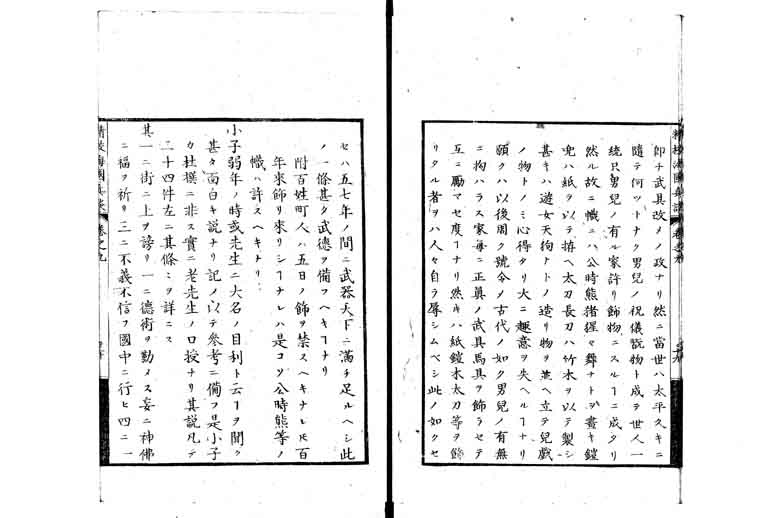 即チ武具改メノ政ナリ然ニ當世ハ太平久キニ
隨テ何ツトナク男兒ノ祝儀翫物ト成テ世人一
統只男兒ノ有ル家許リ飾物ニスルヿニ成タリ
然ル故ニ幟ニハ公時熊猩々舞ナトヲ畫キ鎧
兜ハ紙ヲ以テ拵ヘ太刀長刀ハ竹木ヲ以テ製シ
甚キハ遊女天狗ナトノ造リ物ヲ並ヘ立テ兒戲
ノ物トノミ心得タリ大ニ趣意ヲ失ヘルヿナリ
願クハ以後周ク號令メ古代ノ如ク男兒ノ有無
ニ拘ハラス家毎ニ正眞ノ武具馬具ヲ飾ラセテ
互ニ勵マセ度ヿナリ然キハ紙鎧木太刀等ヲ飾
リタル者ヲハ人々自ラ辱シムベシ此ノ如クセ
精校海國兵談
セハ五七年ノ間ニ武器天下ニ滿チ足ルヘシ此
ノ一條甚タ武德ヲ備フヘキヿナリ
附百姓町人ハ五日ノ飾ヲ禁スヘキナレ𪜈百
年來飾リ來リシヿナレハ是コソ公時熊等ノ
幟ハ許スヘキナリ
小子弱年ノ時或先生ニ大名ノ目利ト云ヿヲ聞ク
甚タ面白キ説ナリ記メ以テ參考ニ備フ是小子
カ杜撰ニ非ス實ニ老先生ノ口授ナリ其説凡テ
二十四件左ニ其條々ヲ詳ニス
其一ニ街ニ上ヲ謗リ一ニ德術ヲ勤メス妄ニ神佛
ニ福ヲ祈リ三ニ不義不信ヲ國中ニ行ヒ四ニ一
精校海國兵談 卷之九